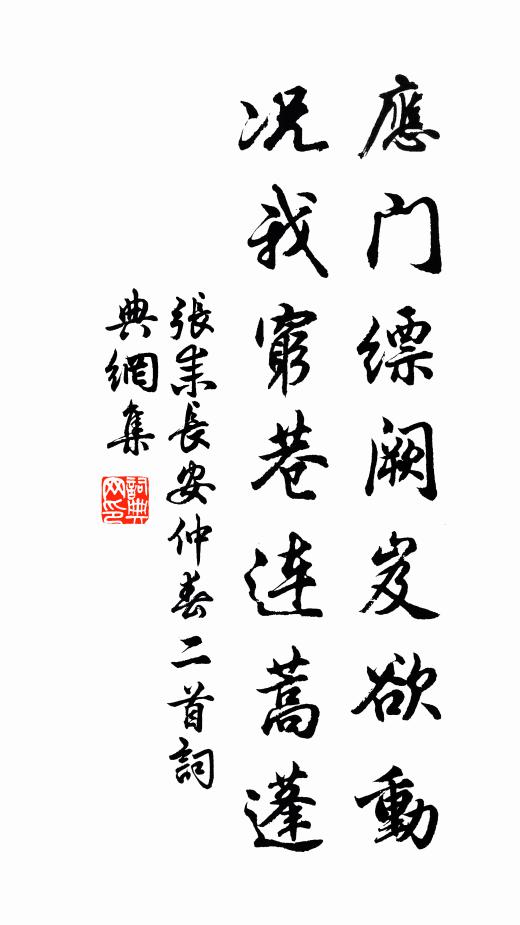 應門縹闕岌欲動
況我窮巷連蒿蓬
張耒長安仲春二首詞
典網集
詞典網印